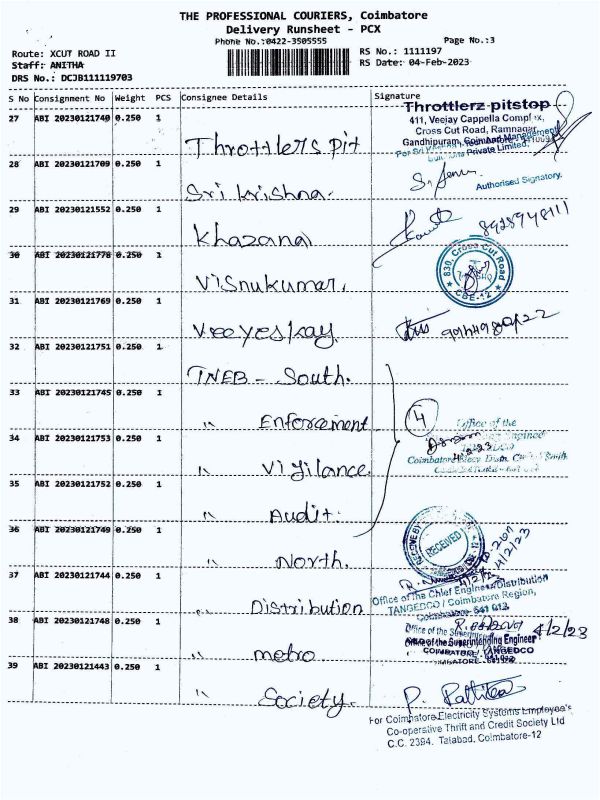 THE PROFESSIONAL COURIERS, Coimbatore
Delivery Runsheet - PCX
Phone No.:0422-3505555 Page No.:3
Route: XCUT ROAD II RS No.: 1111197
Staff: ANITHA RS Date: 04-Feb-2023
DRS No.: DCJB111119703
S No Consignment No Weight PCS Consignee Details Signature
27 ABI 20230121740 0.250 1
Throttlerz pitstop
411, Veejay Cappella Complex,
Cross Cut Road, Ramnagar,
Gandhipuram,
Throttlers Pit
28 ABI 20230121709 0.250 1
Private Limited.
Authorised Signatory.
Sri Krishna.
29 ABI 20230121552 0.250 1
8928948111
Khazana
30 ABI 20230121778 0.250 1
830, Cross Cut Road
CBE-12
Visnukumar.
31 ABI 20230121769 0.250 1
Veeyeskay.
32 ABI 20230121751 0.250 1
TNEB - South.
33 ABI 20230121745 0.250 1
4
Office of the
" Enforcement
34 ABI 20230121753 0.250 1
4.2.23
" Vigilance.
35 ABI 20230121752 0.250 1
" Audit.
36 ABI 20230121749 0.250 1
RECEIVED
" North.
4/2/23
37 ABI 20230121744 0.250 1
Office of the Chief Engineer/Distribution
TANGEDCO / Coimbatore Region,
Coimbatore- 641 012.
" Distribution
38 ABI 20230121748 0.250 1
4/2/23
Office of the Superintending Engineer
COIMBATORE / TANGEDCO
" metro
39 ABI 20230121443 0.250 1
" Society.
For Coimbatore Electricity Systems Employee's
Co-operative Thrift and Credit Society Ltd
C.C. 2394. Tatabad, Coimbatore-12